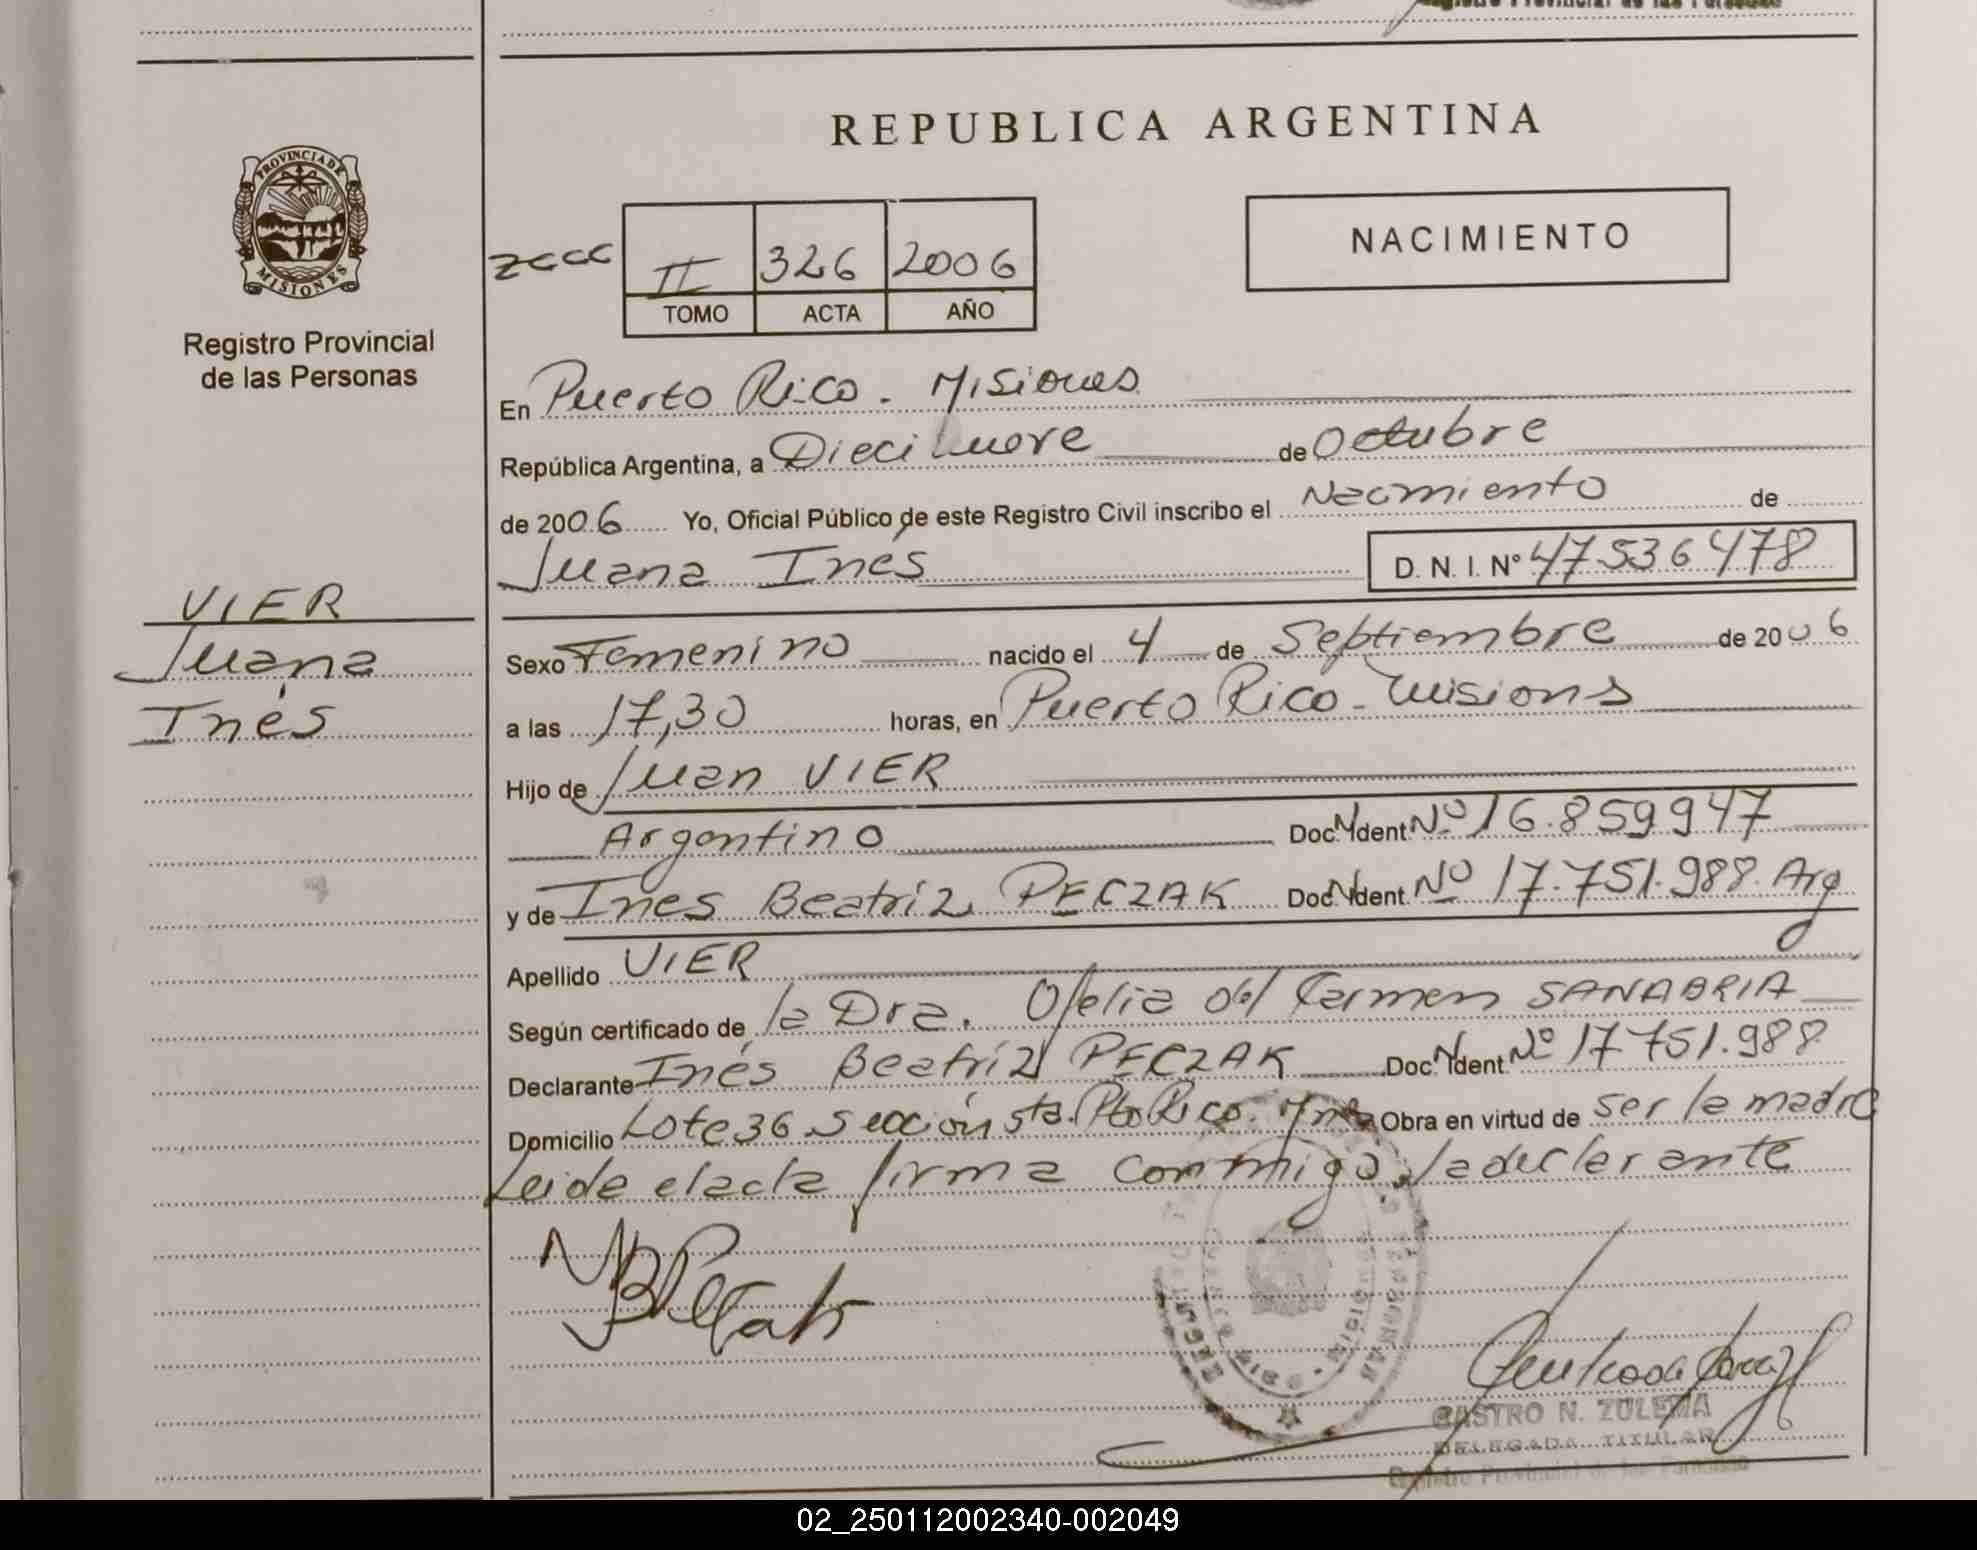 REPUBLICA ARGENTINA
PROVINCIA DE
MISIONES
Registro Provincial
de las Personas
II 326 2006
TOMO ACTA AÑO
NACIMIENTO
En Puerto Rico. Misiones
República Argentina, a Diecinueve de Octubre
de 2006 Yo, Oficial Público de este Registro Civil inscribo el Nacimiento de
Juana Ines D.N.I. Nº 47536478
VIER
Juana
Inés
Sexo Femenino nacido el 4 de Septiembre de 2006
a las 17,30 horas, en Puerto Rico - Misions
Hijo de Juan VIER
Argentino Doc. Ident. Nº 16.859947
y de Ines Beatríz PECZAK Doc. Ident. Nº 17.751.988. Arg
Apellido VIER
Según certificado de la Dra. Ofelia del Carmen SANABRIA
Declarante Inés Beatríz PECZAK Doc. Ident. Nº 17751.988
Domicilio Lote 36 Sección sta. Pto Rico. Mnes Obra en virtud de ser la madre
Leida el acta firma conmigo la declarante
CASTRO N. ZULEMA
DELEGADA TITULAR
Registro Provincial de las Personas
02_250112002340-002049